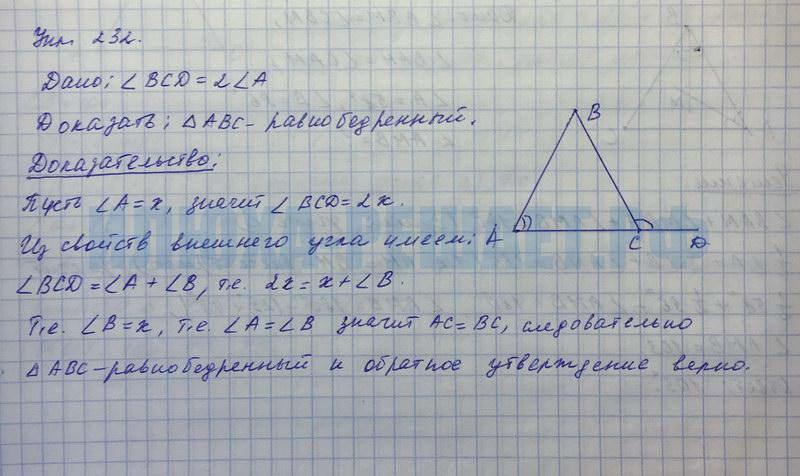 Упр. 232.
Дано: ∠BCD = 2∠A
Доказать: △ABC - равнобедренный.
Доказательство:
Пусть ∠A = x, значит ∠BCD = 2x.
Из свойств внешнего угла имеем:
∠BCD = ∠A + ∠B, т.е. 2x = x + ∠B.
Т.е. ∠B = x, т.е. ∠A = ∠B значит AC = BC, следовательно
△ABC - равнобедренный и обратное утверждение верно.
B
A
C
D